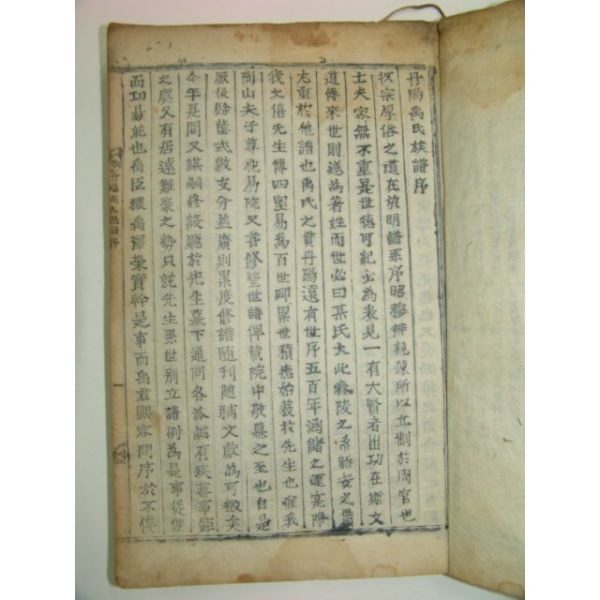 丹陽禹氏族譜序
收宗厚俗之道在於明譜系序昭穆辨親踈所以立制於周官也
士夫家無不重是世德可紀必為表見一有大賢者出功在斯文
道傳來世則遂為著姓而世必曰某氏大此舂陵之系新安之貫
尤重於他譜也禹氏之貫丹陽遠有世序五百年涵儲之運寔降
我文僖先生傳四聖易為百世師累世積德始發於先生也惟我
陶山夫子尊祀易院又善修整世譜俾藏院中敬慕之至也自是
厥後肆蓋式敷支分益廣則累度修譜隨刊隨補文獻為可徵矣
今年是間又謀嗣修設廳於先生墓下通同各派咸有族
之慶又有居遠難聚之勢只就先生系世別立譜例為是事從便
而功易就也禹臣禝禹澤榮實幹是事而禹君熙容問序於不佞